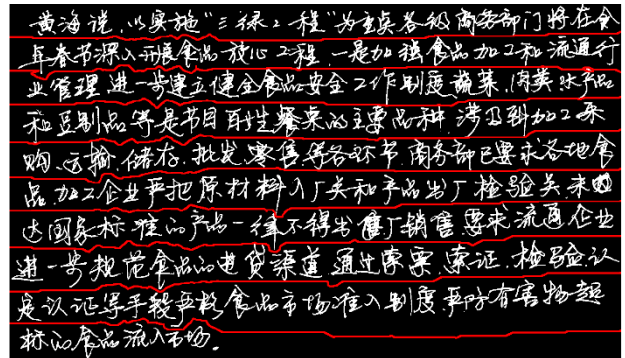 黄海说,以实施“三绿工程”为重点各级商务部门将在今
年春节深入开展食品放心工程,一是加强食品加工和流通行
业管理,进一步建立健全食品安全工作制度蔬菜,肉类水产品
和豆制品等是节日百姓餐桌的主要品种,涉及到加工采
购、运输、储存、批发、零售等各环节,商务部已要求各地食
品加工企业严把原材料入厂关和产品出厂检验关,未
达国家标准的产品一律不得出厂销售,要求流通企业
进一步规范食品的进货渠道,通过索票、索证、检验认
是认证等手段严格食品市场准入制度,严防有害物超
标的食品流入市场。